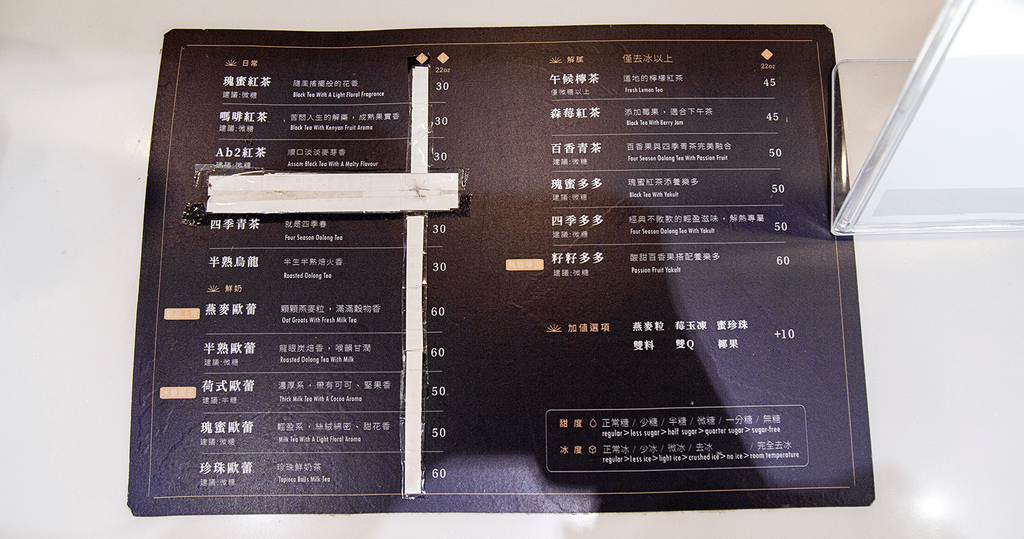 日常
22oz
瑰蜜紅茶 隨風搖擺般的花香 30
建議:微糖 Black Tea With A Light Floral Fragrance
嗎啡紅茶 苦悶人生的解藥，成熟果實香 30
建議:微糖 Black Tea With Kenyan Fruit Aroma
Ab2紅茶 順口淡淡麥芽香 30
建議:微糖 Assam Black Tea With A Malty Flavour
四季青茶 就是四季春 30
Four Season Oolong Tea
半熟烏龍 半生半熟焙火香 30
Roasted Oolong Tea
鮮奶
燕麥歐蕾 顆顆燕麥粒，滿滿穀物香 60
Oat Groats With Fresh Milk Tea
半熟歐蕾 龍眼炭焙香，喉韻甘潤 60
建議:微糖 Roasted Oolong Tea With Milk
荷式歐蕾 濃厚系，帶有可可、堅果香 50
建議:半糖 Thick Milk Tea With A Cocoa Aroma
瑰蜜歐蕾 輕盈系，絲絨綿密、甜花香 50
建議:微糖 Milk Tea With A Light Floral Aroma
珍珠歐蕾 珍珠鮮奶茶 60
建議:微糖 Tapioca Balls Milk Tea
解膩 僅去冰以上
22oz
午候檸茶 道地的檸檬紅茶 45
僅微糖以上 Fresh Lemon Tea
森莓紅茶 添加莓果，適合下午茶 45
Black Tea With Berry Jam
百香青茶 百香果與四季青茶完美融合 50
建議:微糖 Four Season Oolong Tea With Passion Fruit
瑰蜜多多 瑰蜜紅茶添養樂多 50
建議:微糖 Black Tea With Yakult
四季多多 經典不敗款的輕盈滋味，解熱專屬 50
建議:微糖 Four Season Oolong Tea With Yakult
籽籽多多 酸甜百香果搭配養樂多 60
建議:微糖 Passion Fruit Yakult
加値選項 燕麥粒 莓玉凍 蜜珍珠 +10
雙料 雙Q 椰果
甜度 正常糖 / 少糖 / 半糖 / 微糖 / 一分糖 / 無糖
regular>less sugar>half sugar>quarter sugar>sugar-free
冰度 正常冰 / 少冰 / 微冰 / 去冰 完全去冰
regular>less ice>light ice>crushed ice>no ice>room temperature